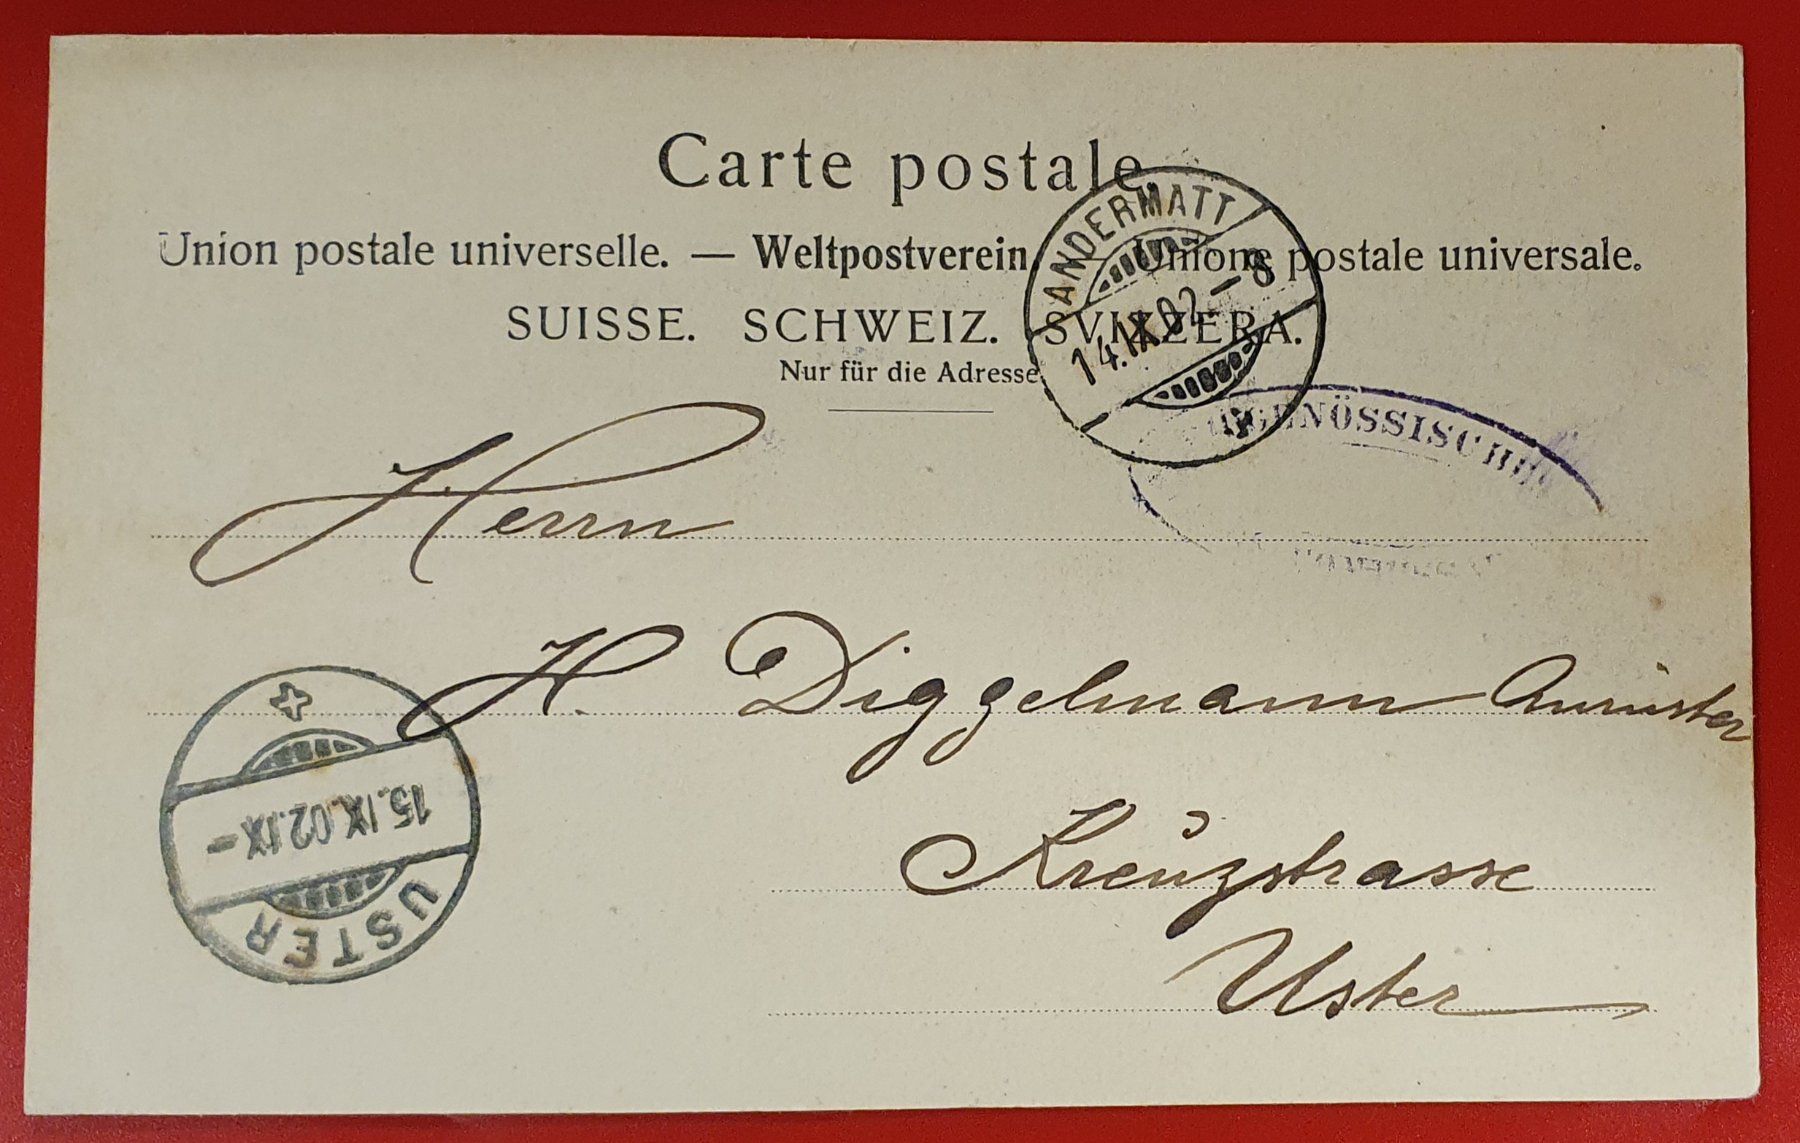 Carte postale.
Union postale universelle. — Weltpostverein — Unione postale universale.
SUISSE. SCHWEIZ. SVIZZERA.
Nur für die Adresse
ANDERMATT
14.IX.02.-8
EIDGENÖSSISCHE
Herrn
H. Diggelmann
Kreuzstrasse
Uster
15.IX.02.IX-
USTER